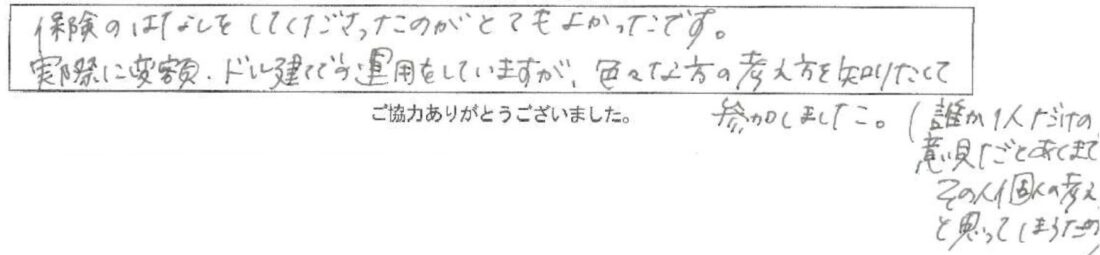 保険のはなしをしてくださったのがとてもよかったです。
実際に変額・ドル建てで運用をしていますが、色々な方の考え方を知りたくて
参加しました。(誰か1人だけの
意見だとあくまで
その人個人の考え
と思ってしまうため)
ご協力ありがとうございました。